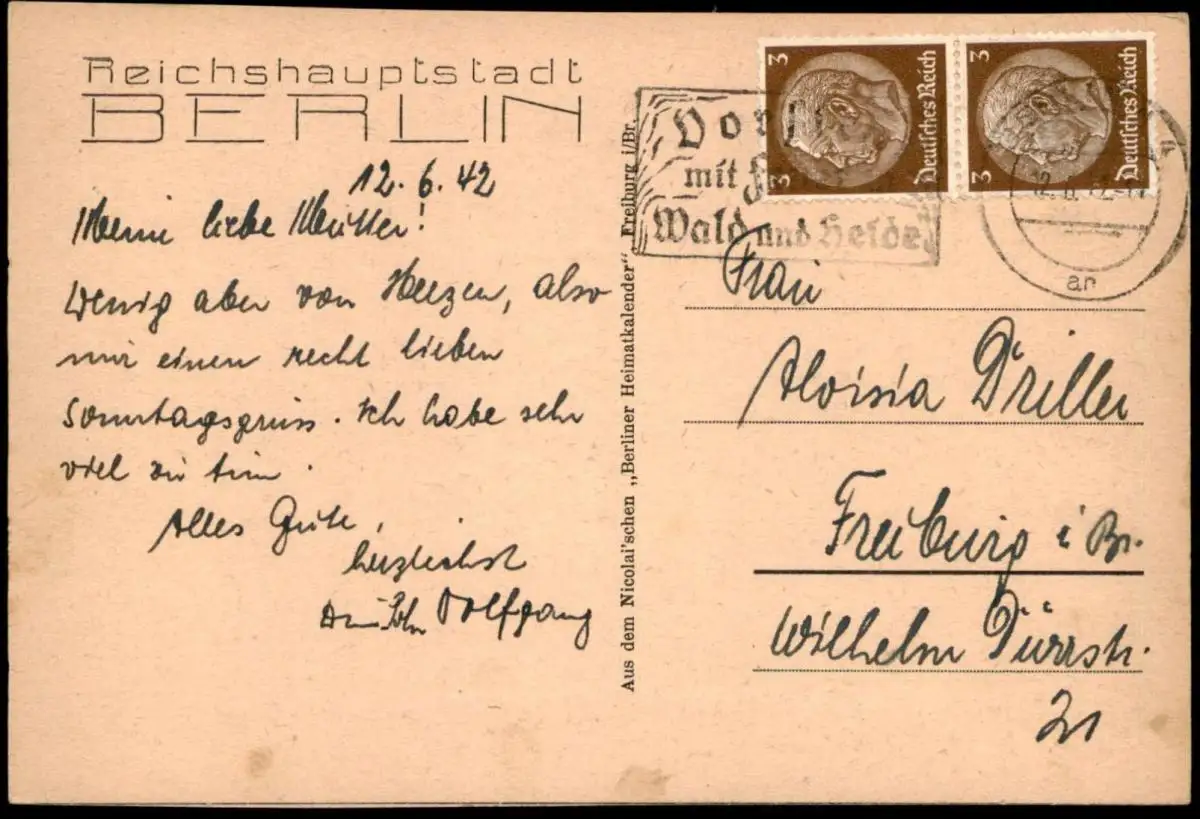 Reichshauptstadt
BERLIN
12. 6. 42
Meine liebe Mutter!
Wenig aber von Herzen, also
nur einen recht lieben
Sonntagsgruss. Ich habe sehr
viel zu tun.
Alles Gute,
herzlichst
Dein Sohn Wolfgang
Aus dem Nicolai'schen „Berliner Heimatkalender“, Freiburg i/Br.
3 Deutsches Reich 3
3 Deutsches Reich 3
mit
Wald und Heide
12. 6. 42
an
Frau
Aloisia Driller
Freiburg i Br.
Wilhelm Dürrstr.
21